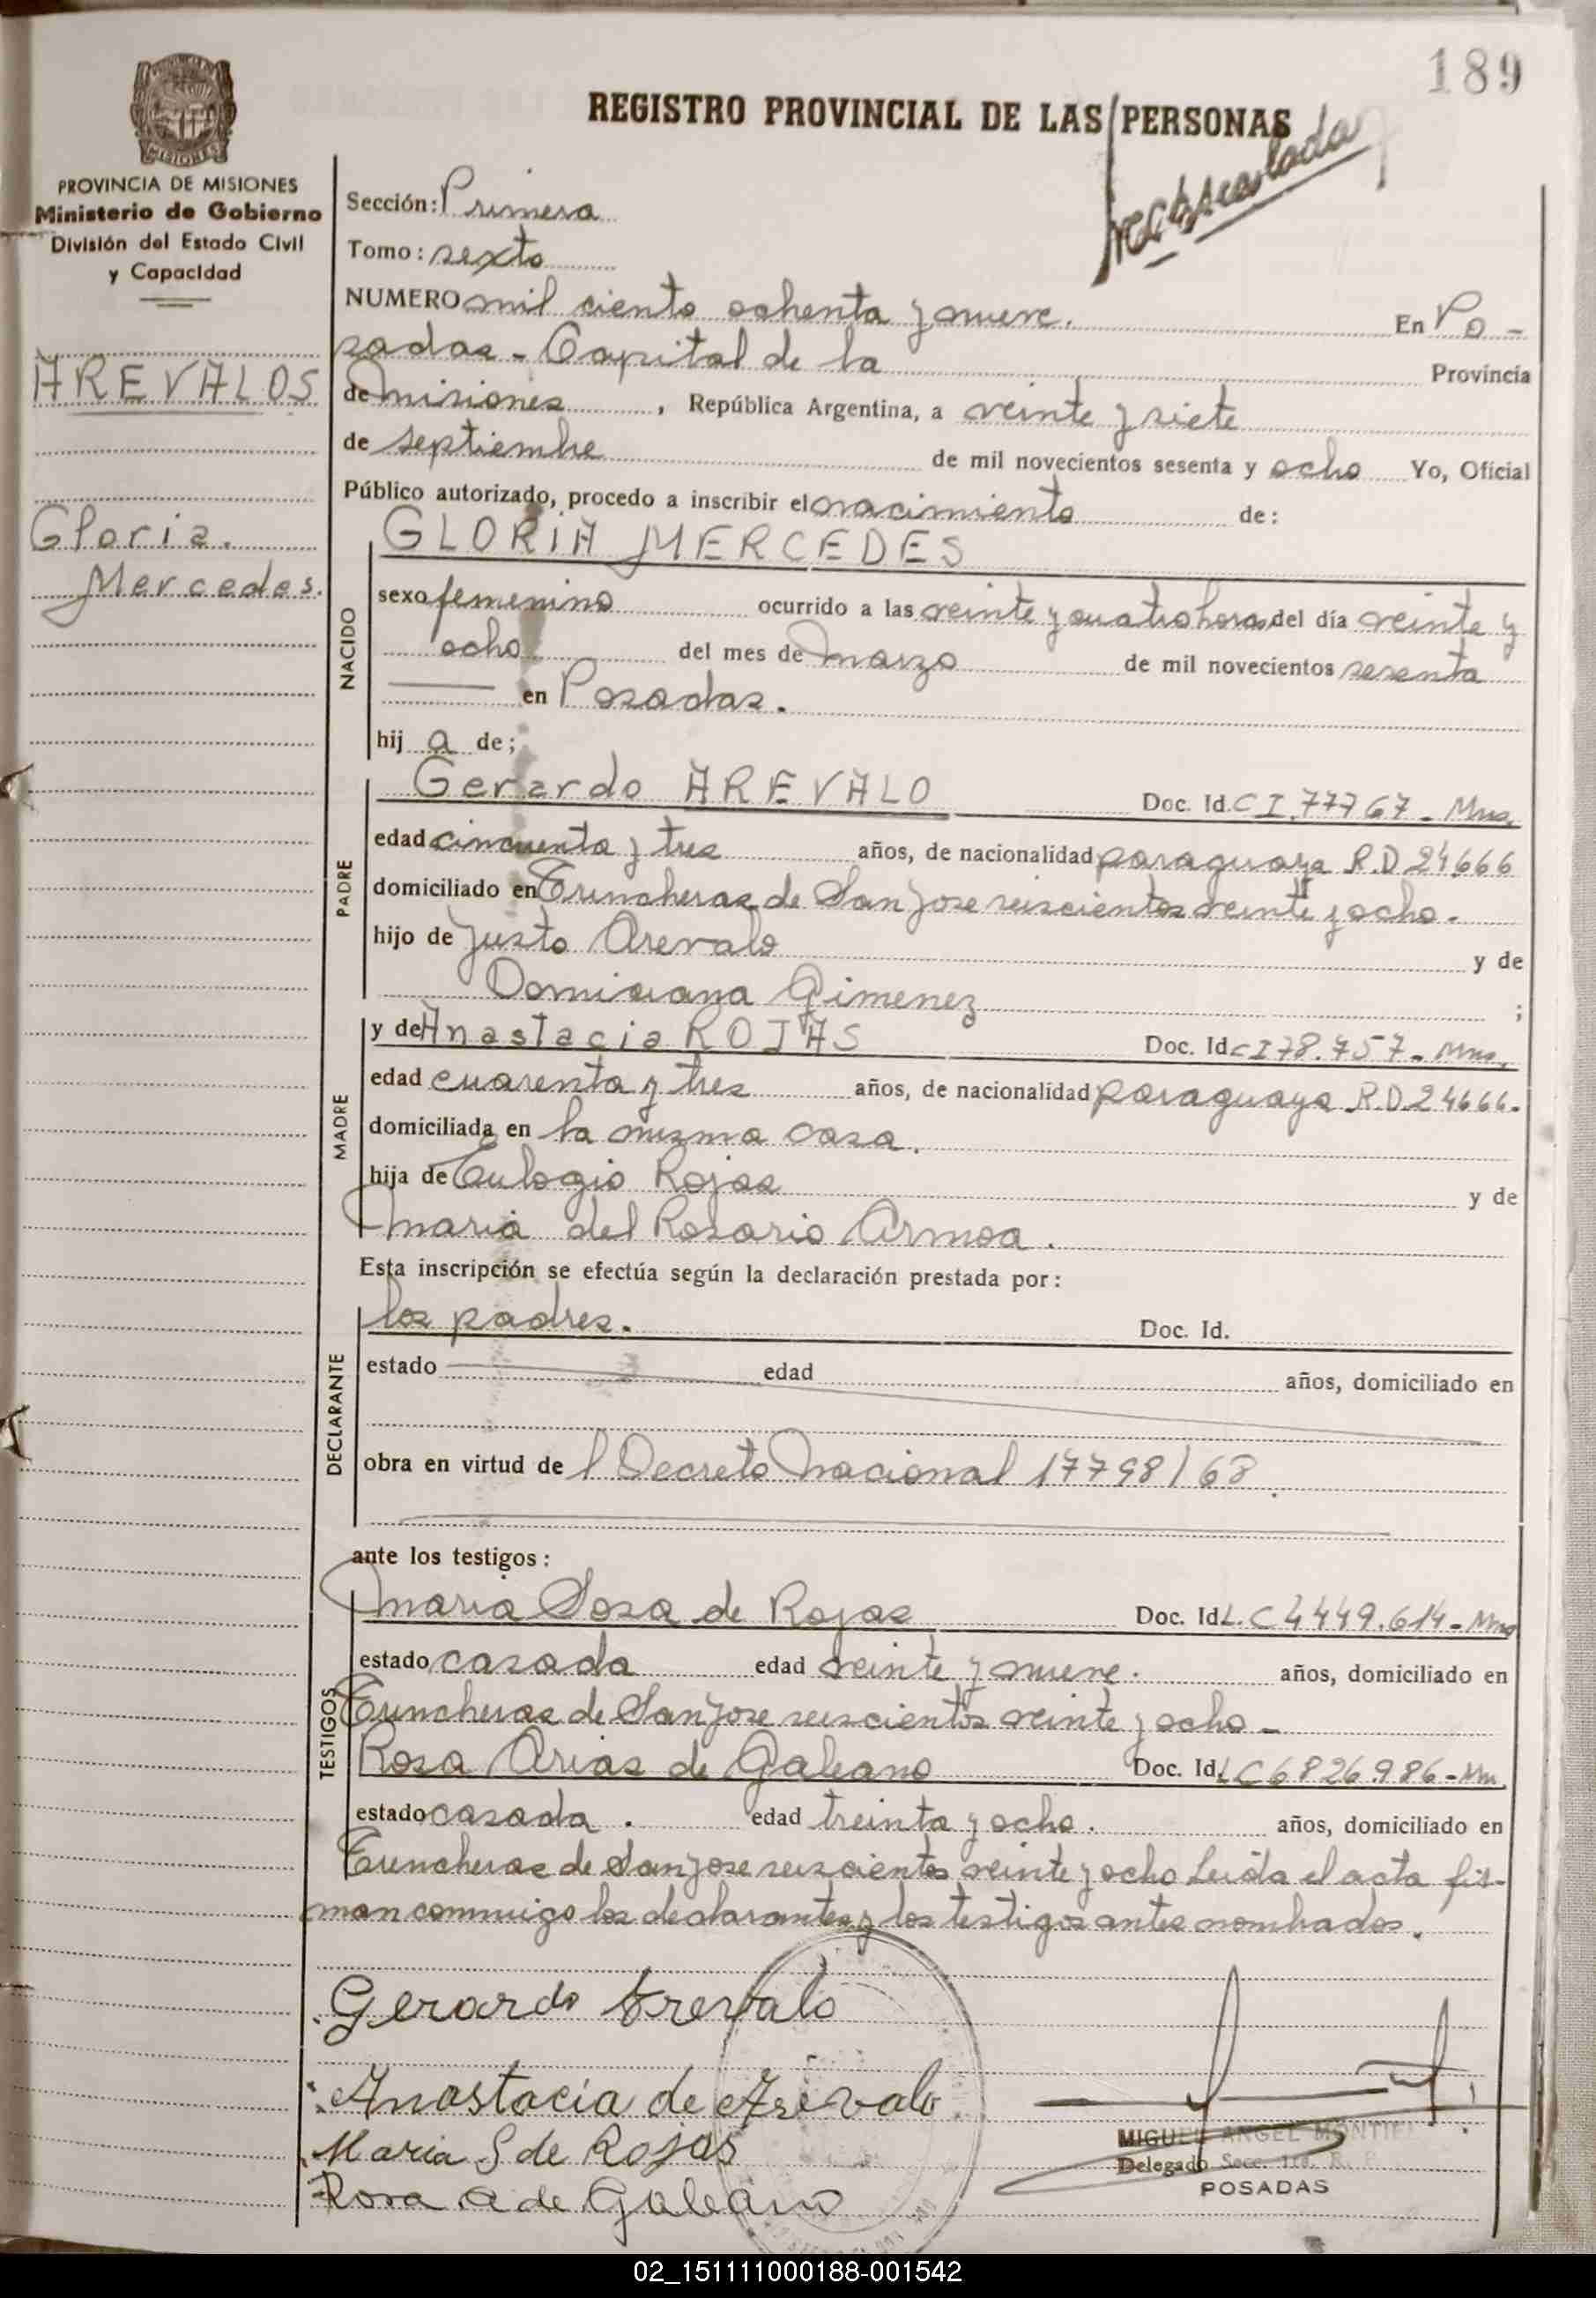 189
REGISTRO PROVINCIAL DE LAS PERSONAS
MISIONES
PROVINCIA DE MISIONES
Ministerio de Gobierno
División del Estado Civil
y Capacidad
Sección: Primera
Tomo: sexto
NUMERO mil ciento ochenta y nueve. En Po-
sadas - Capital de la Provincia
AREVALOS
de misiones, República Argentina, a veinte y siete
de septiembre de mil novecientos sesenta y ocho Yo, Oficial
Público autorizado, procedo a inscribir el nacimiento de:
Gloria.
Mercedes.
GLORIA MERCEDES
NACIDO
sexo femenino ocurrido a las veinte y cuatro horas del día veinte y
ocho del mes de marzo de mil novecientos sesenta
en Posadas.
hij a de;
PADRE
Gerardo AREVALO Doc. Id. C I. 77767 - Mns.
edad cincuenta y tres años, de nacionalidad paraguaya R.D 24666
domiciliado en Trincheras de San Jose seiscientos veinte y ocho.
hijo de Justo Arevalo y de
Domiciana Gimenez ;
MADRE
y de Anastacia ROJAS Doc. Id C I 78.757 - Mns.
edad cuarenta y tres años, de nacionalidad paraguaya R.D 24666.
domiciliada en la misma casa.
hija de Eulogio Rojas y de
Maria del Rosario Armoa.
Esta inscripción se efectúa según la declaración prestada por:
DECLARANTE
los padres. Doc. Id.
estado edad años, domiciliado en
obra en virtud de l Decreto Nacional 17798/68
ante los testigos:
TESTIGOS
Maria Sosa de Rojas Doc. Id L. C 4449.614 - Mns
estado casada edad veinte y nueve. años, domiciliado en
Trincheras de San Jose seiscientos veinte y ocho -
Rosa Arias de Galeano Doc. Id. L C 6826.986 - Mn.
estado casada. edad treinta y ocho. años, domiciliado en
Trincheras de San Jose seiscientos veinte y ocho Leida el acta fir-
man conmigo los declarantes y los testigos antes nombrados.
Gerardo Arevalo
Anastacia de Arevalo
Maria S de Rojas
Rosa A de Galeano
MIGUEL ANGEL MONTIEL
Delegado Secc. 1ra. R. P.
POSADAS
02_151111000188-001542